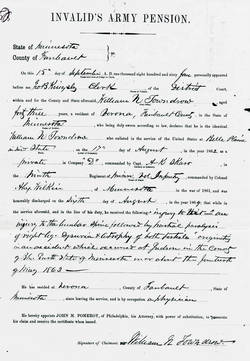 INVALID'S ARMY PENSION.
State of Minnesota
County of Faribault
On this 15th day of September A. D. one thousand eight hundred and sixty five personally appeared
before me, Clerk of the District Court,
within and for the County and State aforesaid, William N. Towndrow
forty three years, a resident of Verona, Faribault County, in the State of
Minnesota who being duly sworn according to law, declares that he is the identical
William N. Towndrow who enlisted in the service of the United States at Belle Plaine
in this State on the 17th day of August, in the year 1862 as a
private in Company "D", commanded by Capt. A K Skaro
in the Ninth Regiment of Infantry commanded by Colonel
Alex. Wilkin of Minnesota in the war of 1861, and was
honorably discharged on the Sixth day of August, in the year 1864; that while in the
service aforesaid, and in the line of his duty, he received the following injury to wit: an
injury to the lumbar followed by partial paralysis
of right leg of both testicles originating
in an accident which occurred at Judson in the County
of in the State of Minnesota in or about the
of May 1863
He has resided at Verona, County of Faribault, State of
Minnesota, since leaving the service, and is by occupation a physician
He hereby appoints JOHN M. POMEROY, of Philadelphia, his Attorney, with power of substitution, to prosecute
his claim and receive the certificate when issued.
Signature of Claimant: William N. Towndrow